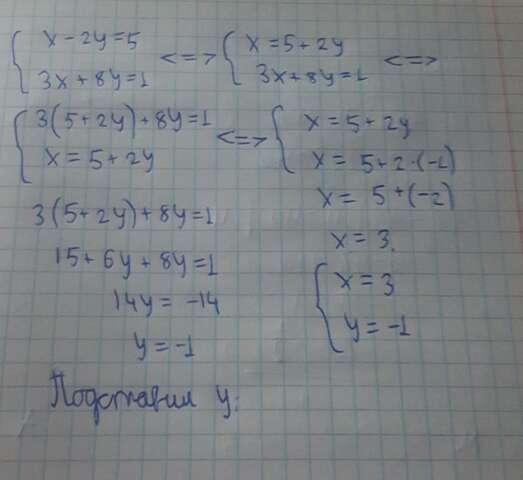 { x - 2y = 5 <=> { x = 5 + 2y <=>
3x + 8y = 1 3x + 8y = 1
{ 3(5 + 2y) + 8y = 1 <=> { x = 5 + 2y
x = 5 + 2y x = 5 + 2·(-1)
x = 5 + (-2)
3(5 + 2y) + 8y = 1
x = 3.
15 + 6y + 8y = 1
{ x = 3
14y = -14
y = -1
y = -1
Подставим y: